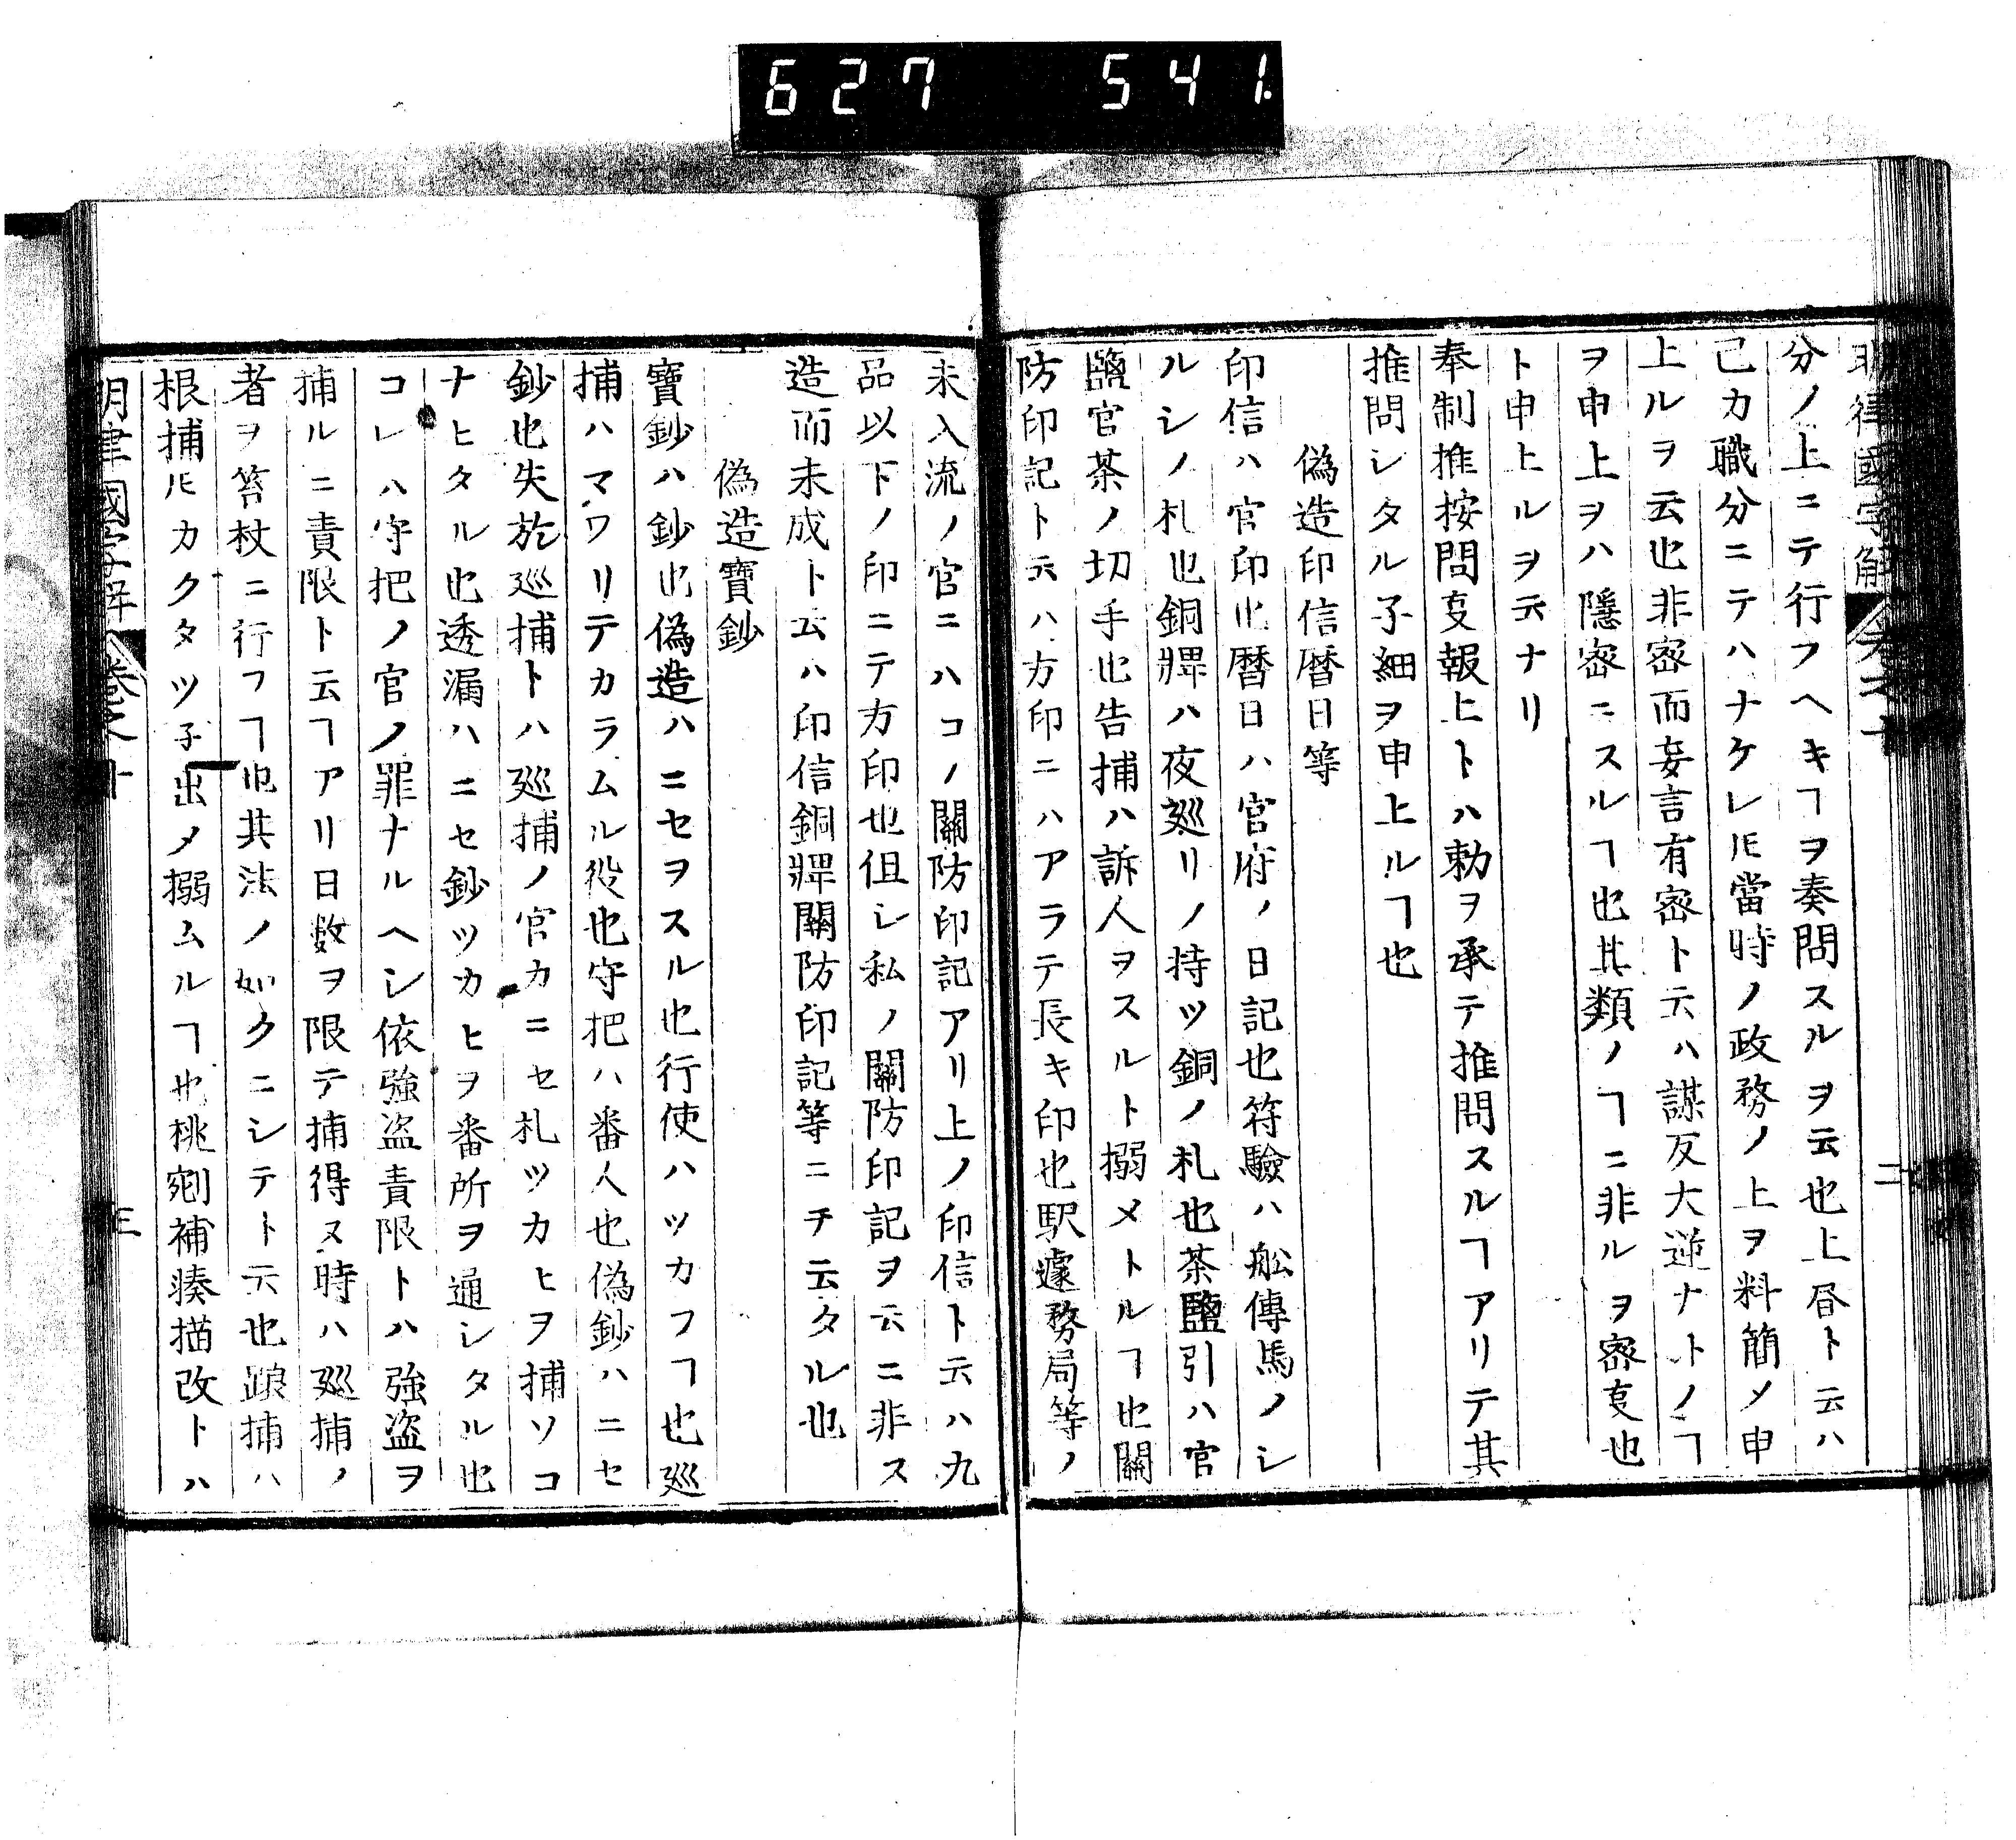 627 541.
明律國字解 卷之十 二
分ノ上ニテ行フヘキヿヲ奏問スルヲ云也上昏ト云ハ
己カ職分ニテハナケレ𪜈當時ノ政務ノ上ヲ料簡メ申
上ルヲ云也非宻而妄言有宻ト云ハ謀反大逆ナトノヿ
ヲ申上ヲハ隱宻ニスルヿ也其類ノヿニ非ルヲ宻㕝也
ト申ヒルヲ云ナリ
奉制推按問㕝報上トハ勅ヲ承テ推問スルヿアリテ其
推問シタル子細ヲ申上ルヿ也
偽造印信暦日等
印信ハ官印也暦日ハ官府ノ日記也符驗ハ舩傳馬ノシ
ルシノ札也銅牌ハ夜廵リノ持ツ銅ノ札也茶鹽引ハ官
鹽官茶ノ切手也告捕ハ訴人ヲスルト搦メトルヿ也關
防印記ト云ハ方印ニハアラテ長キ印也駅遞務局等ノ
未入流ノ官ニハコノ關防印記アリ上ノ印信ト云ハ九
品以下ノ印ニテ方印也但シ私ノ關防印記ヲ云ニ非ス
造而未成ト云ハ印信銅牌關防印記等ニチ云タル也
偽造寶鈔
寶鈔ハ鈔也偽造ハニセヲスル也行使ハツカフヿ也廵
捕ハマワリテカラムル役也守把ハ番人也偽鈔ハニセ
鈔也失於廵捕トハ廵捕ノ官カニセ札ツカヒヲ捕ソコ
ナヒタル也透漏ハニセ鈔ツカヒヲ番所ヲ通シタル也
コレハ守把ノ官ノ罪ナルヘシ依強盗責限トハ強盗ヲ
捕ルニ責限ト云ヿアリ日数ヲ限テ捕得ヌ時ハ廵捕ノ
者ヲ笞杖ニ行フヿ也其法ノ如クニシテト云也跟捕ハ
根捕𪜈カクタツ子出メ搦ムルヿ也桃剜補湊描改トハ
明律國字解 卷之十 三